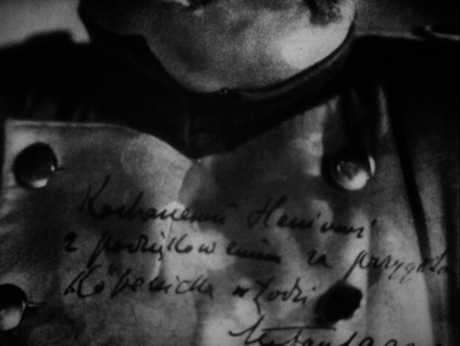 Kochanemu Heniowi
z podziękowaniem za przygoto
Köpenicka w Łodzi
Stefan